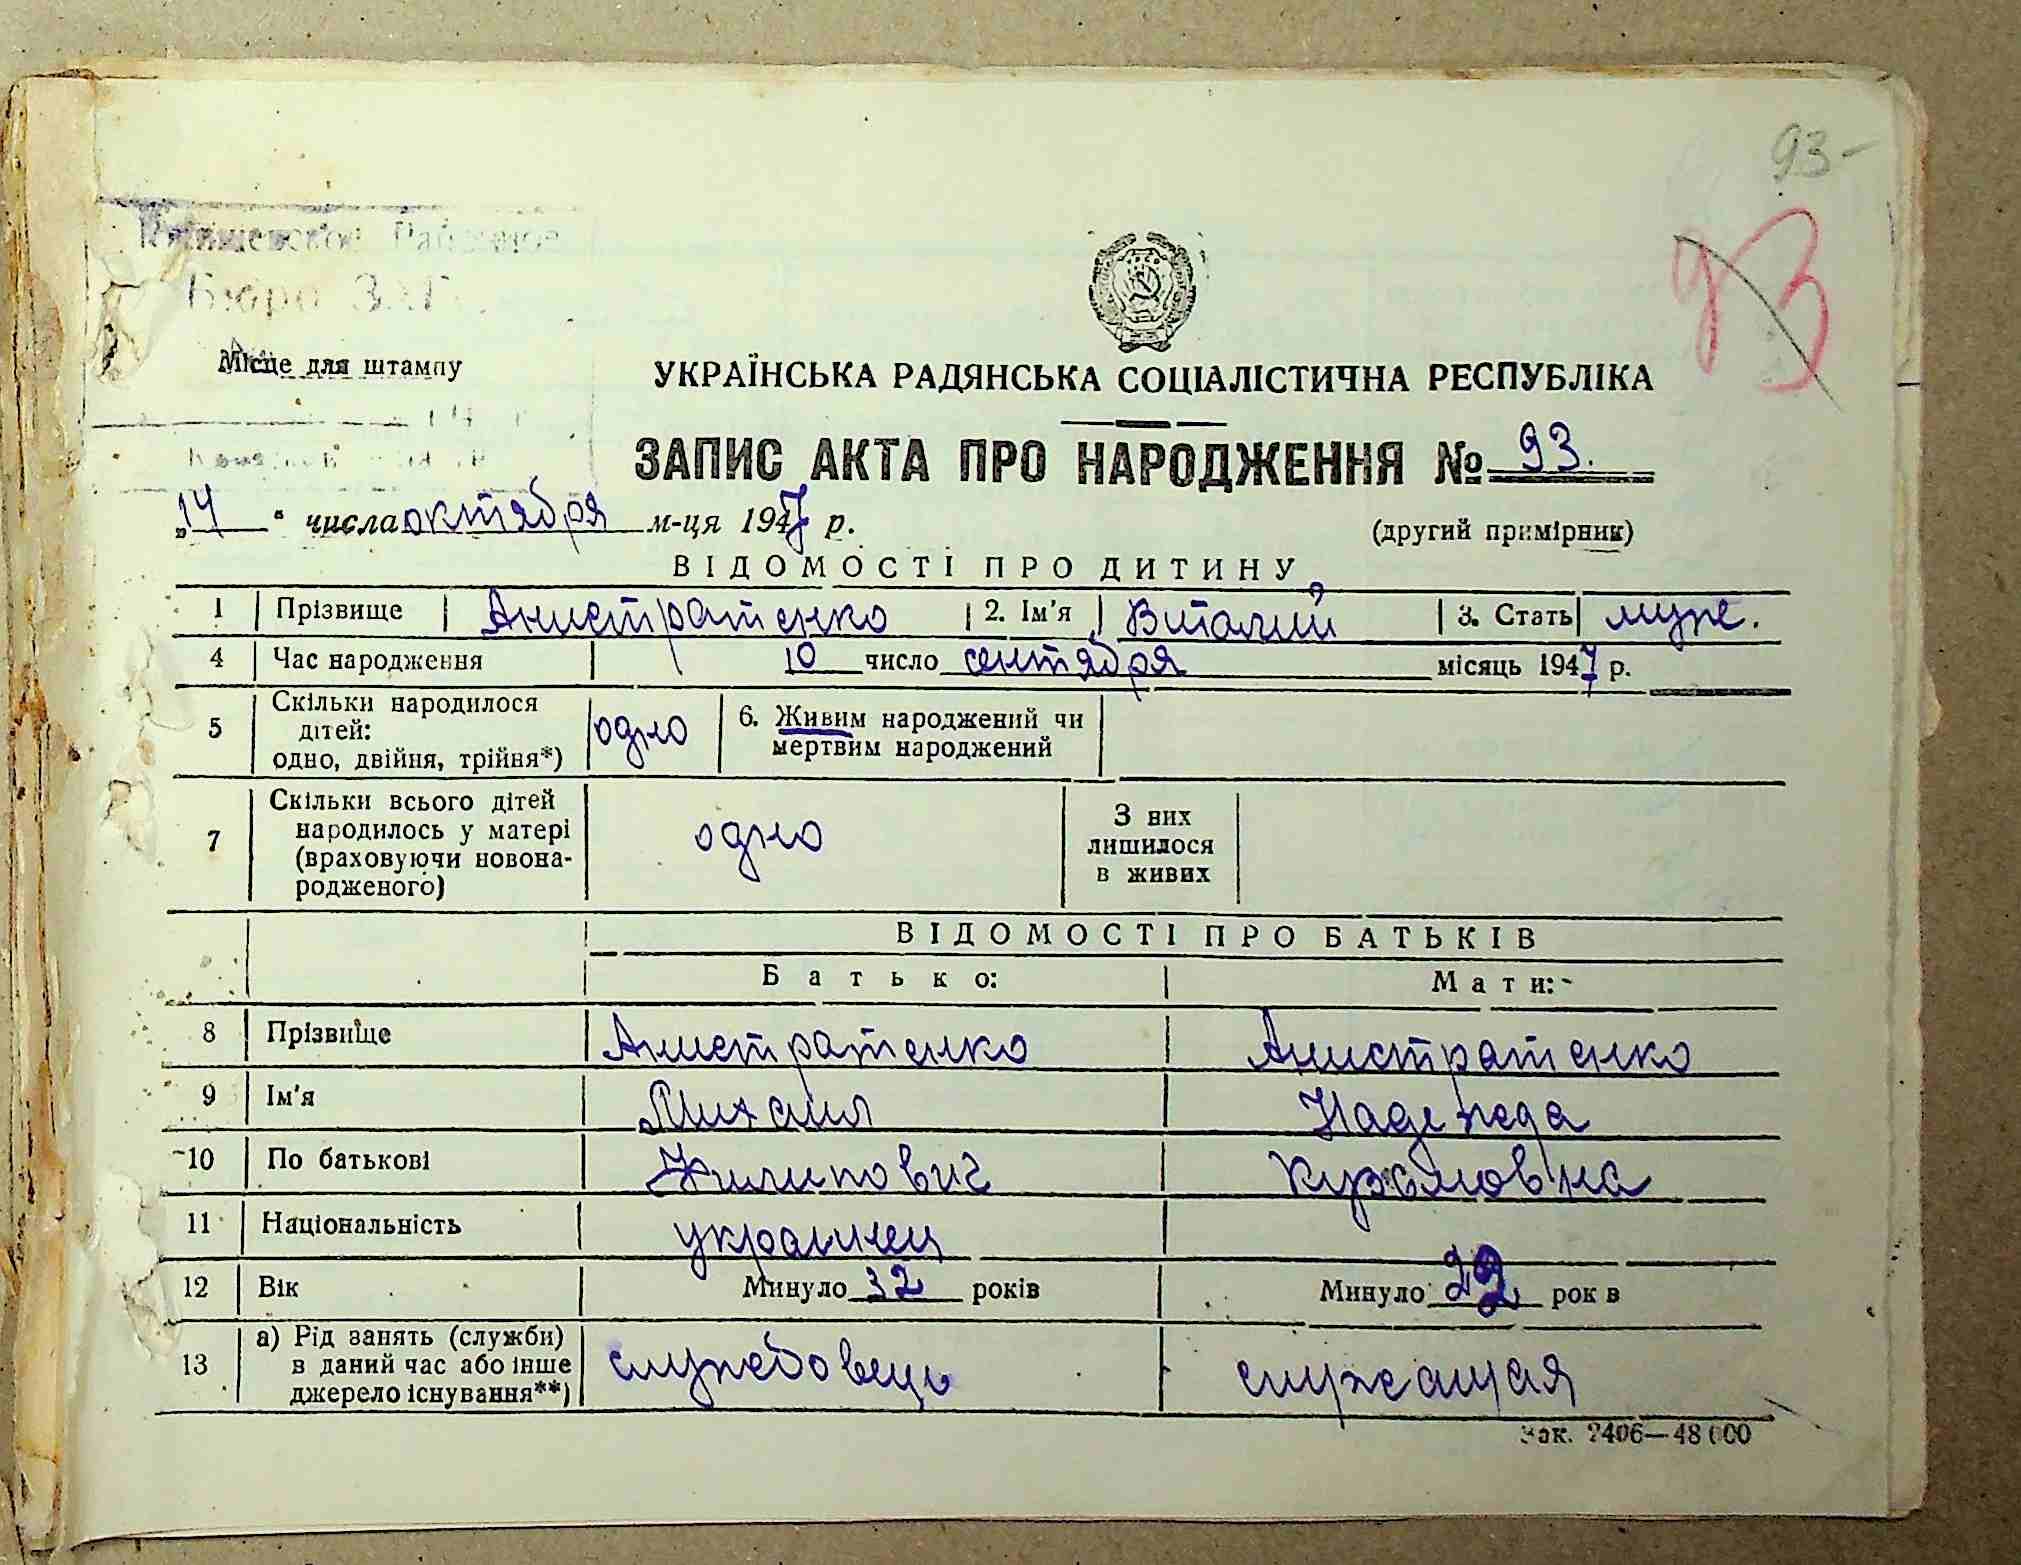 93-
93
Районное
Бюро ЗАГС
Місце для штампу
УКРАЇНСЬКА РАДЯНСЬКА СОЦІАЛІСТИЧНА РЕСПУБЛІКА
ЗАПИС АКТА ПРО НАРОДЖЕННЯ № 93.
„14“ числа октября м-ця 1947 р.
(другий примірник)
ВІДОМОСТІ ПРО ДИТИНУ
1 Прізвище Анистратенко 2. Ім'я Виталий 3. Стать муж.
4 Час народження 10 число сентября місяць 1947 р.
5 Скільки народилося дітей: одно, двійня, трійня*) одно 6. Живим народжений чи мертвим народжений
7 Скільки всього дітей народилось у матері (враховуючи новонародженого) одно З них лишилося в живих
ВІДОМОСТІ ПРО БАТЬКІВ
Батько: Мати:
8 Прізвище Анистратенко Анистратенко
9 Ім'я Михаил Надежда
10 По батькові Филипович Кузьмовна
11 Національність украинец
12 Вік Минуло 32 років Минуло 22 рок в
13 а) Рід занять (служби) в даний час або інше джерело існування**) службовець служащая
Зак. 2406—48000